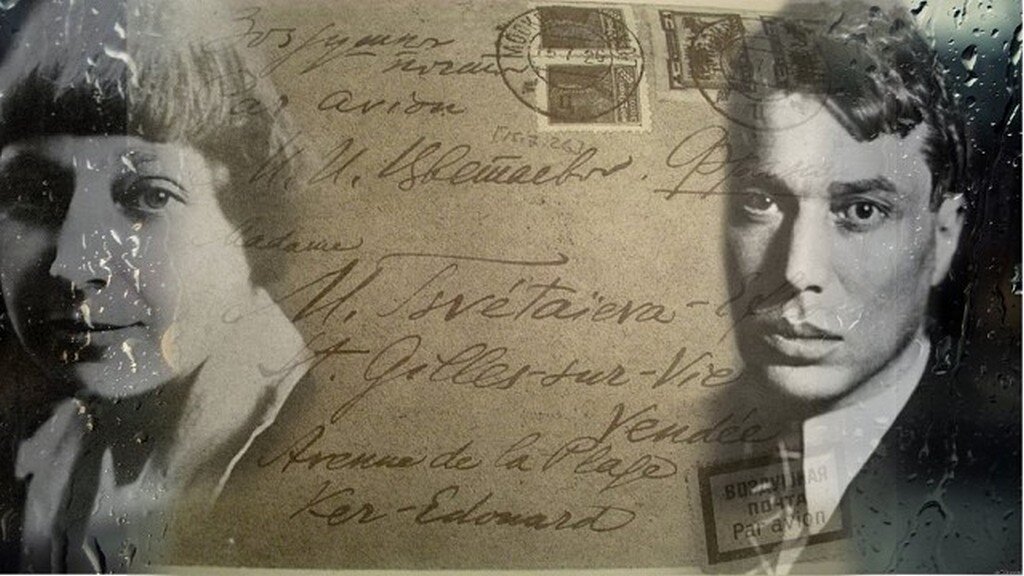 Par avion
М. И. Цветаевой.
Madame
M. Tsvétaïeva-
St. Gilles-sur-Vie
Vendée
Avenue de la Plage
Ker-Edouard
ВОЗДУШНАЯ
ПОЧТА
Par avion